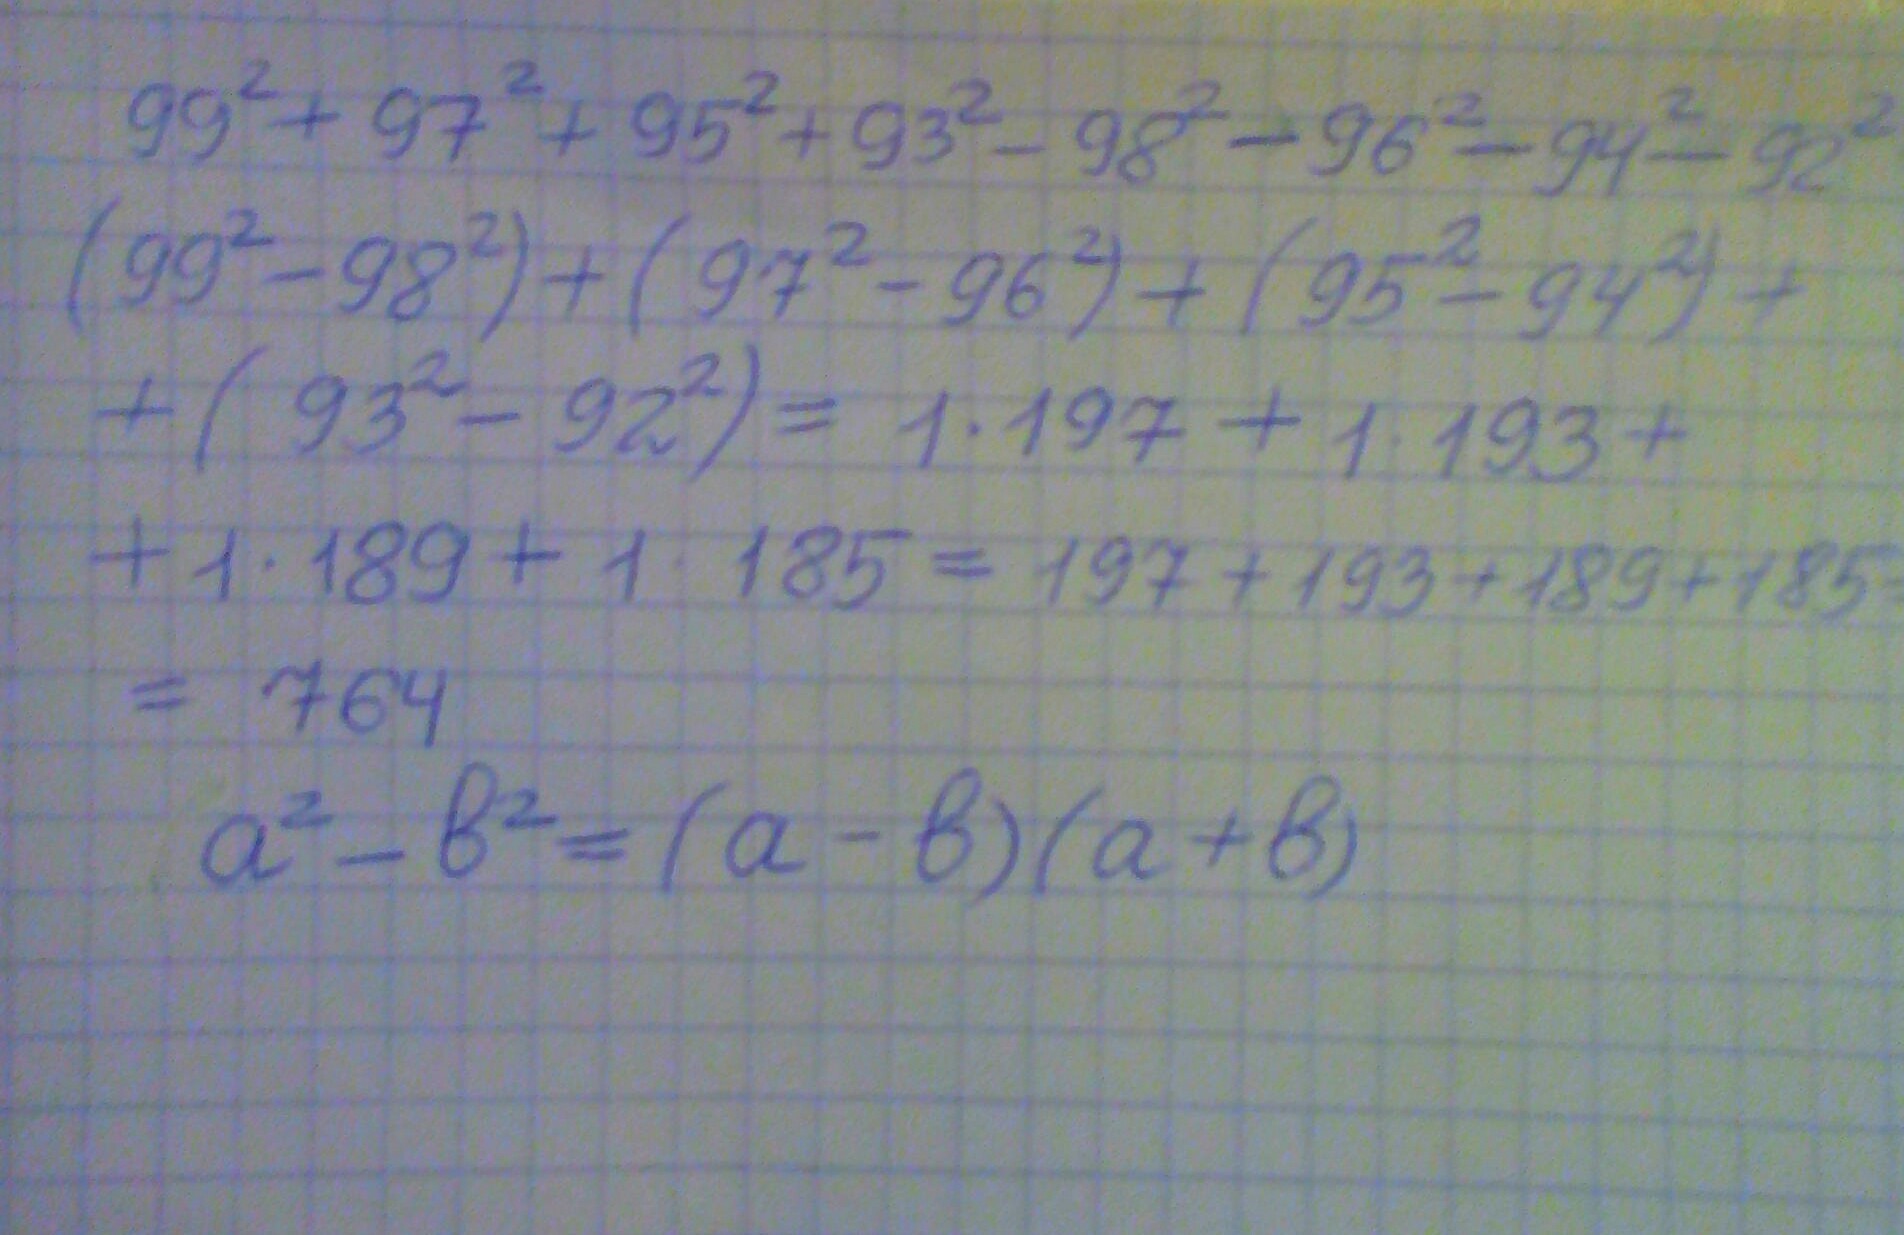 99² + 97² + 95² + 93² - 98² - 96² - 94² - 92²
(99² - 98²) + (97² - 96²) + (95² - 94²) +
+ (93² - 92²) = 1·197 + 1·193 +
+ 1·189 + 1·185 = 197 + 193 + 189 + 185 =
= 764
a² - b² = (a - b)(a + b)